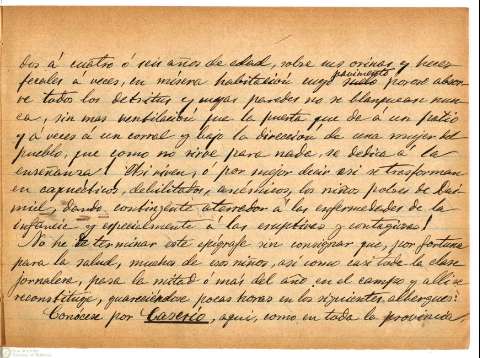 dos á cuatro ó seis años de edad, sobre sus orines y heces
fecales á veces, en mísera habitacion cuyo pavimento poroso absor-
ve todos los detritus y cuyas paredes no se blanquean nun-
ca, sin mas ventilacion que la puerta que dá á un patio
y á veces á un corral y bajo la direccion de una mujer del
pueblo, que como no sirve para nada, se dedica á la
enseñanza! Asi viven, ó por mejor decir asi se trasforman
en raquiticos, debilitados, anémicos, los niños pobres de Dai-
miel, dando contingente aterrador á las enfermedades de la
infancia y especialmente á las eruptivas y contagiosas!
No he de terminar este epígrafe sin consignar que, por fortuna
para la salud, muchos de esos niños, asi como casi toda la clase
jornalera, pasa la mitad ó mas del año en el campo y alli se
reconstituye, guareciéndose pocas horas en los siguientes albergues:
Conócese por Caserio, aqui, como en toda la provincia